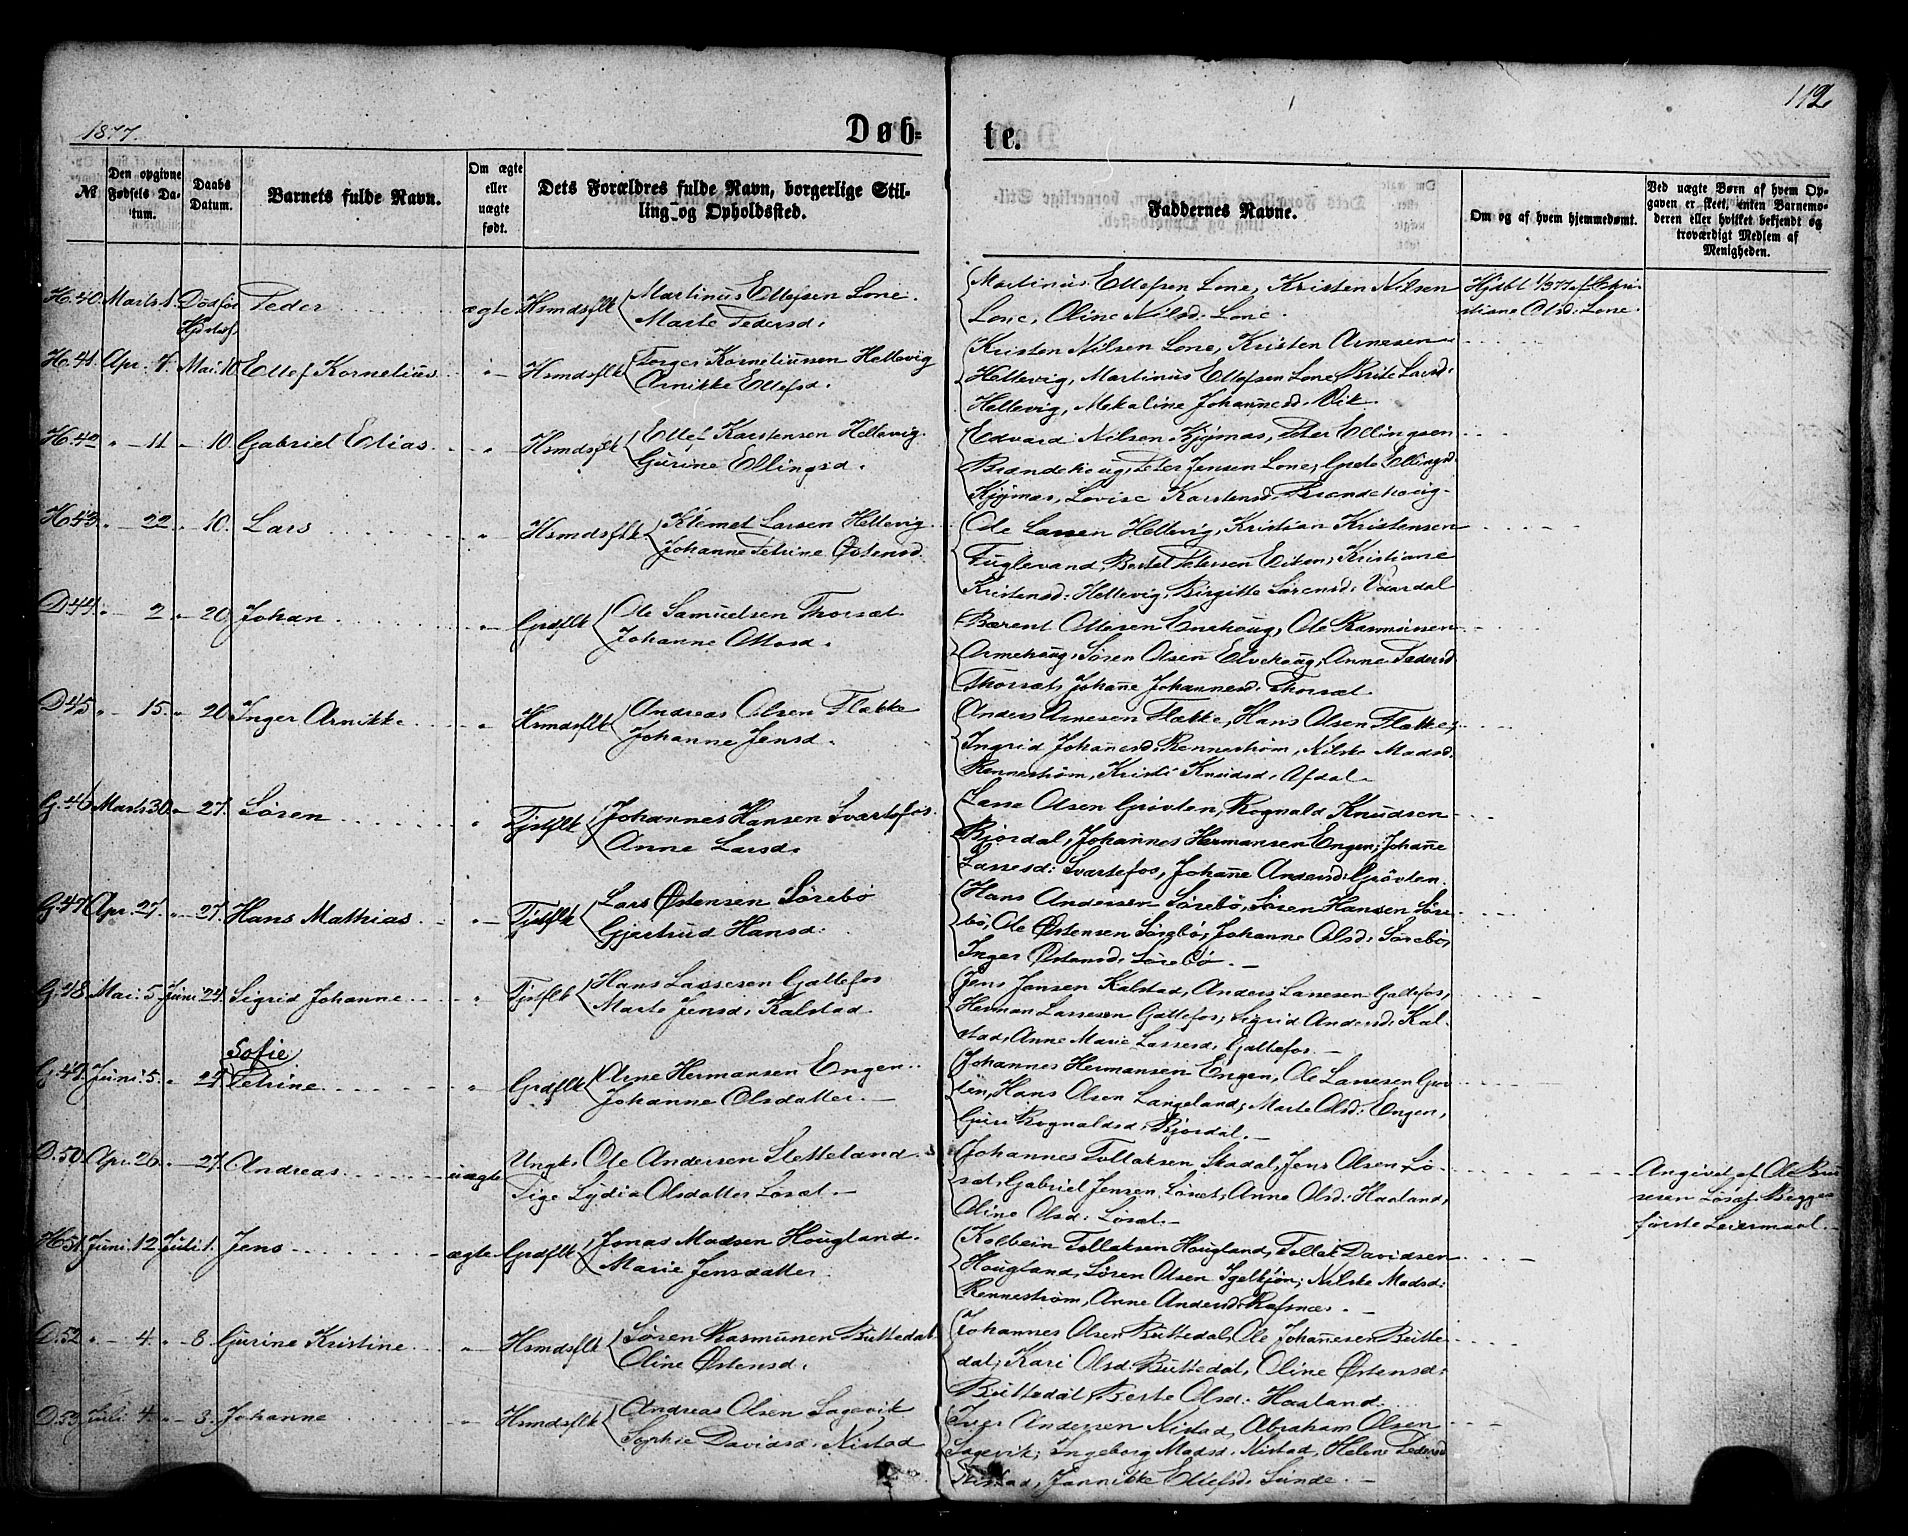 1877.
Døb-
te.
112
№
Den opgivne Fødsels Datum.
Daabs Datum.
Barnets fulde Navn.
Om ægte eller uægte født.
Dets Forældres fulde Navn, borgerlige Stilling og Opholdssted.
Faddernes Navne.
Om og af hvem hjemmedømt.
Ved uægte Børn af hvem Opgaven er skeet, enten Barnemoderen eller hvilket bekjendt og troværdigt Medlem af Menigheden.
H. 40. Marts 1. Dødfør Peder ægte Hsmdsflk Martinus Ellefsen Lone.
Marte Pedersd:
Martinus Ellefsen Lone, Kristen Nilsen
Lone, Oline Nilsd: Lone.
Hjdbt 1/3 77 af
stiane Olsd: Lone.
H. 41. Apr. 7. Mai. 10. Ellef Kornelius " Hsmdsflk Torger Korneliussen Hellevig
Arnikke Ellefsd:
Kristen Nilsen Lone, Kristen Arnesen
Hellevig, Martinus Ellefsen Lone, Brite Larsd:
Hellevig, Mekaline Johannesd: Vik.
H. 42 " 11 " 10. Gabriel Elias " Hsmdsflk Ellef Karstensen Hellevig.
Gurine Ellingsd.
Edvard Nilsen Kjyrnas, Peter Ellingsen
Brandehoug, Peter Jensen Lone, Grete Ellingsd:
Lovise Karstensd: Brandehoug.
H. 43. " 22 " 10. Lars " Hsmdsflk. Klemet Larsen Hellevig
Johanne Petrine Østensd.
Ole Larsen Hellevig, Kristian Kristensen
Fuglevand, Bertel Petersen Eiken, Kristiane
Kristensd: Hellevig, Birgitte Sørensd: Vaardal
D 44. " 2 " 20. Johan " Grdflk Ole Samuelsen Thorsæt.
Johanne Ottosd.
Bærent Ottesen Enehoug, Ole Rasmussen
Armehoug, Søren Olsen Elvehoug, Anne Pedersd
Thorsæt, Johanne Johannesd: Thorsæt
D 45 " 15. " 20. Inger Arnikke " Hsmdsflk Andreas Olsen Flekke
Johanne Jensd.
Anders Arnesen Flække, Hans Olsen Flække,
Ingrid Johanesd: Rennestrøm, Nilske Madsd:
Rennestrøm, Kristi Knudsd: Afdal.
G. 46 Marts 30. " 27. Søren " Tjstflk Johannes Hansen Svartefos.
Anne Larsd.
Lasse Olsen Grøvlen, Rognald Knudsen
Bjordal, Johannes Hermansen Engen, Johane
Lassesd: Svartefos, Johane Andersd: Grøvlen.
G. 47. Apr. 27. " 27. Hans Mathias " Tjstflk Lars Østensen Sørebø
Gjertrud Hansd:
Hans Andersen Sørebø, Søren Hansen Søre-
bø, Ole Østensen Sørebø, Johanne Olsd: Sørebø,
Inger Østensd: Sørebø.
G. 48. Mai. 5. Juni 24. Sigrid Johanne " Tjstflk Hans Lassesen Gattefos
Marte Jensd: Kalstad.
Jens Jansen Kalstad, Anders Lassesen Gattefos,
Herman Lassesen Gattefos, Sigrid Andersd: Kal-
stad, Anne Marie Lassesd: Gattefos.
G. 49. Juni. 5. " 24. Sofie
Petrine " Grdflk Arne Hermansen Engen.
Johanne Olsdatter.
Johannes Hermansen Engen, Ole Lassesen Grøv-
len, Hans Olsen Langeland, Marte Olsd: Engen,
Guri Rognaldsd: Bjordal.
D. 50. Apr. 26. " 27. Andreas uægte Ungk: Ole Andersen Sletteland.
Pige Lydia Olsdatter Løsæt.
Johannes Tollaksen Skadal, Jens Olsen Lø-
sæt, Gabriel Jensen Løsæt, Anne Olsd: Haaland,
Oline Olsd: Løsæt.
Angivet af Ole
Løsæt. Begges
første Leiermaal.
H. 51. Juni. 12. Juli 1. Jens ægte Grdflk Jonas Madsen Hougland.
Marie Jensdatter.
Kolbein Tollaksen Hougland, Tollak Davidsen
Hougland, Søren Olsen Igelkjøn, Nilske Madsd:
Rennestrøm, Anne Andersd: Rafsnæs.
D. 52 " 4. " 8. Gurine Kristine " Hsmdsflk Søren Rasmusen Buttedal
Oline Østensd.
Johannes Olsen Buttedal, Ole Johanesen Butte-
dal, Kari Olsd: Buttedal, Oline Østensd:
Buttedal, Berte Olsd: Haaland.
D. 53. Juli. 4. " 8. Johanne " Hsmdsflk Andreas Olsen Sagevik
Sophie Davidsd: Nistad
Iver Andersen Nistad, Abraham Olsen
Sagevik, Ingeborg Madsd: Nistad, Helene Pedersd
Nistad, Jannikke Ellefsd: Sunde.